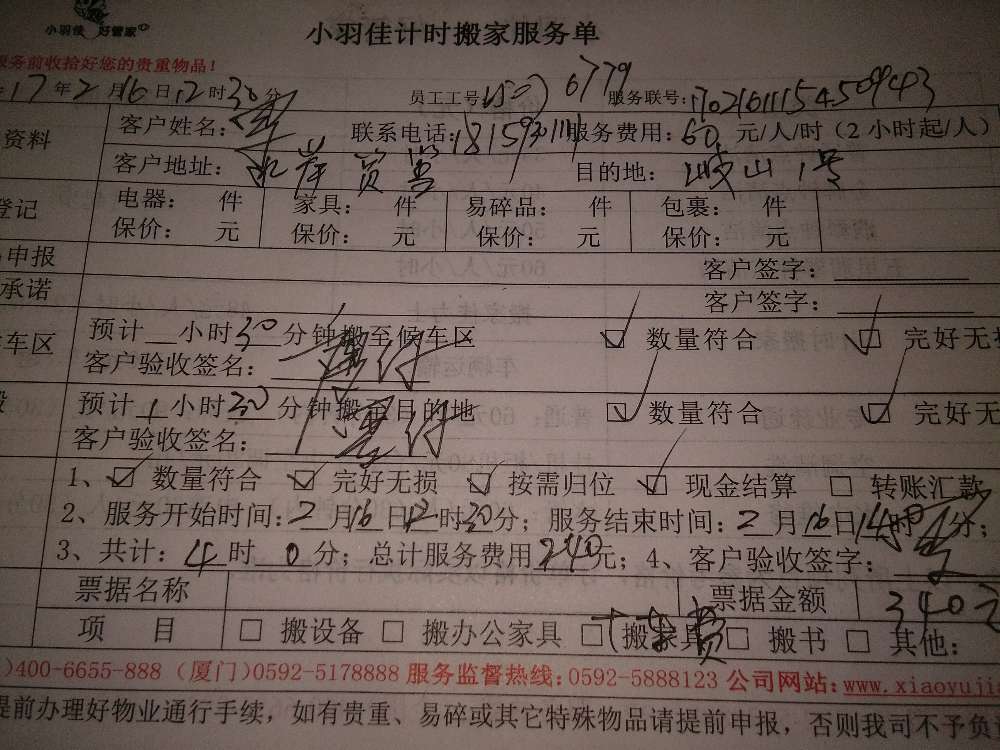 小羽佳 好管家
小羽佳计时搬家服务单
服务前收拾好您的贵重物品！
17年2月16日12时30分 员工工号 6779 服务联号：
资料 客户姓名： 联系电话：18159301111 服务费用：60元/人/时（2小时起/人）
客户地址： 目的地： 岐山1号
登记 电器： 件 家具： 件 易碎品： 件 包裹： 件
保价： 元 保价： 元 保价： 元 保价： 元
申报 客户签字：
承诺 客户签字：
车区 预计 小时30分钟搬至候车区 ☑ 数量符合 ☑ 完好无损
客户验收签名：
预计1小时30分钟搬至目的地 ☑ 数量符合 ☑ 完好无
客户验收签名：
1、☑ 数量符合 ☑ 完好无损 ☑ 按需归位 ☑ 现金结算 □ 转账汇款
2、服务开始时间：2月16日12时30分；服务结束时间：2月16日14时 分；
3、共计：4时0分；总计服务费用240元；4、客户验收签字：
票据名称 票据金额 340元
项 目 □ 搬设备 □ 搬办公家具 □ 搬家具 □ 搬书 □ 其他：
)400-6655-888 (厦门)0592-5178888 服务监督热线：0592-5888123 公司网站：www.xiaoyujia
提前办理好物业通行手续，如有贵重、易碎或其它特殊物品请提前申报，否则我司不予负